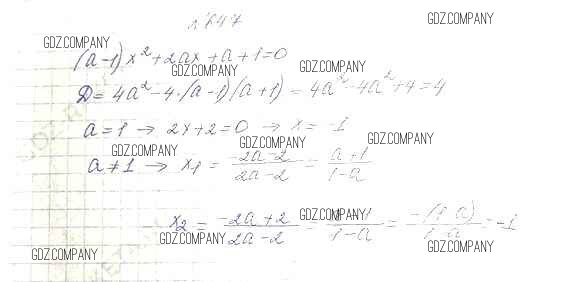 № 647
GDZ.COMPANY
GDZ.COMPANY
(a-1)x²+2ax+a+1=0
GDZ.COMPANY
GDZ.COMPANY
D=4a²-4·(a-1)(a+1)=4a²-4a²+4=4
a=1 → 2x+2=0 → x=-1
GDZ.COMPANY
GDZ.COMPANY
GDZ.COMPANY
a≠1 → x₁ = (-2a-2)/(2a-2) = (a+1)/(1-a)
GDZ.COMPANY
x₂ = (-2a+2)/(2a-2) = /(1-a) = -(1-a)/(1-a) = -1
GDZ.COMPANY
GDZ.COMPANY
GDZ.COMPANY